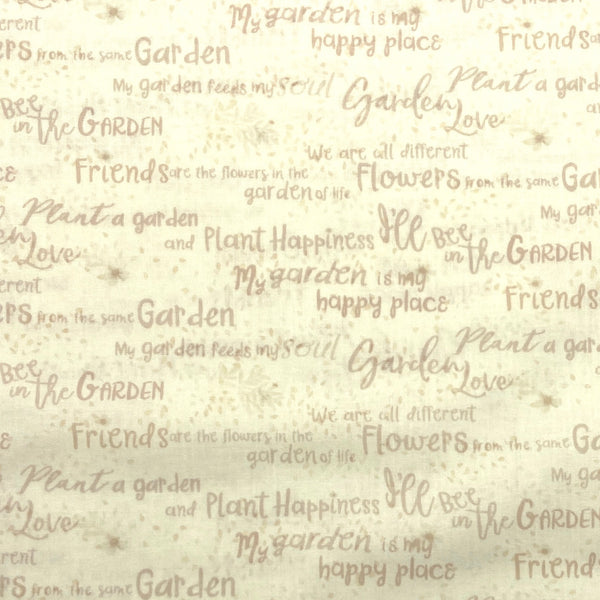 My garden is my
happy place
erent
ers from the same Garden
Friends
My garden feeds my soul
Garden Love
Plant a gard
Bee
in the GARDEN
We are all different
Friends are the flowers in the
garden of life
Flowers from the same Ga
Plant a garden
My gar
and Plant Happiness
I'll Bee
in the GARDEN
Love
My garden is my
happy place
erent
ers from the same Garden
Friends
My garden feeds my soul
Garden Love
Plant a gar
Bee
in the GARDEN
We are all different
Friends are the flowers in the
garden of life
Flowers from the same G
Plant a garden
My ga
and Plant Happiness
I'll Bee
in the GARDEN
Love
My garden is my
happy place
erent
ers from the same Garden
Friends